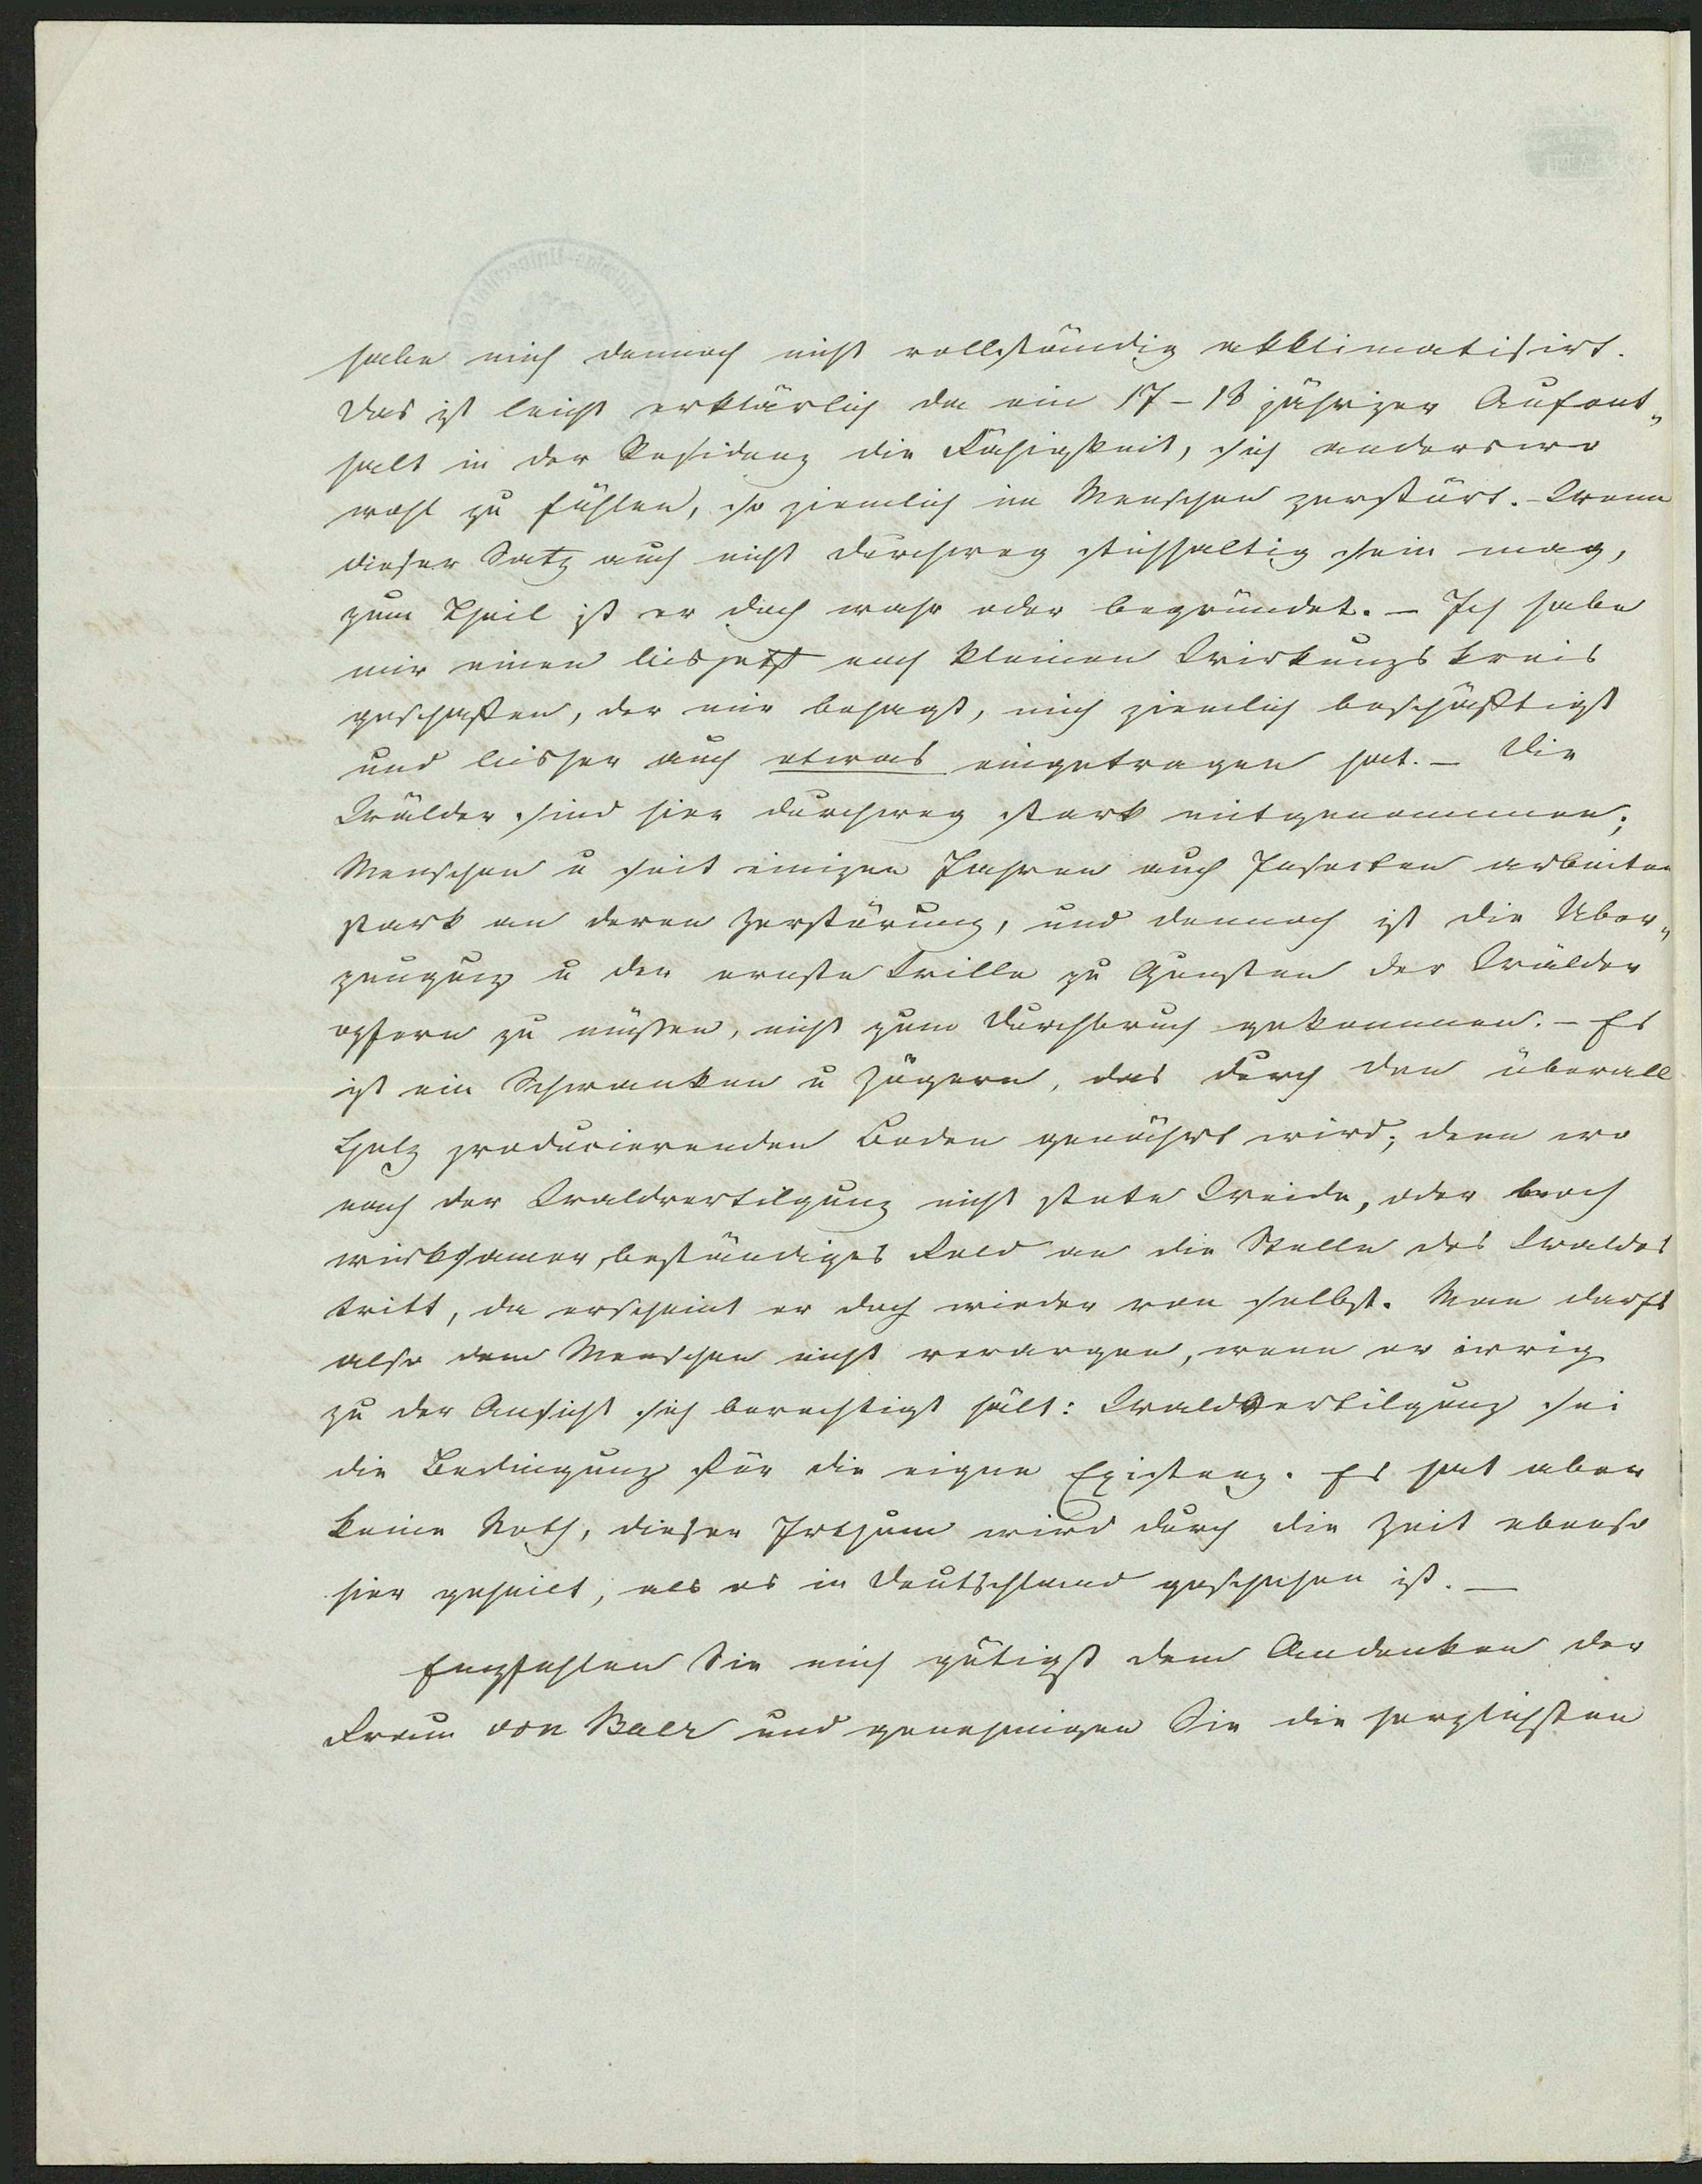 habe mich dennoch nicht vollständig akklimatisirt.
Das ist leicht erklärlich da ein 17-18 jähriger Aufent„
halt in der Residenz die Fähigkeit, sich anderswo
wohl zu fühlen, so ziemlich im Menschen zerstört. - Wenn
dieser Satz auch nicht durchweg stichhaltig sein mag,
zum Theil ist er doch wahr oder begründet. - Ich habe
mir einen bisjetzt noch kleinen Wirkungskreis
geschaffen, der mir behagt, mich ziemlich beschäftigt
und bisher auch etwas eingetragen hat. - Die
Wälder sind hier durchweg stark mitgenommen;
Menschen u seit einigen Jahren auch Insecten arbeiten
stark an deren Zerstörung, und dennoch ist die Ueber„
zeugung u der ernste Wille zu Gunsten der Wälder
opfern zu müssen, nicht zum Durchbruch gekommen. - Es
ist ein Schwanken u Zögern, das durch den überall
Holz producierenden Boden genährt wird; denn wo
nach der Waldvertilgung nicht stete Weide, oder noch
wirksamer, beständiges Feld an die Stelle des Waldes
tritt, da erscheint er doch wieder von selbst. Man darf's
also dem Menschen nicht verargen, wenn er irrig
zu der Ansicht sich berechtigt hält: Waldvertilgung sei
die Bedingung für die eigne Existenz. Es hat aber
keine Noth, dieser Irthum wird durch die Zeit ebenso
hier geheilt, als es in Deutschland geschehen ist. —
Empfehlen Sie mich gütigst dem Andenken der
Frau von Baer und genehmigen Sie die herzlichsten